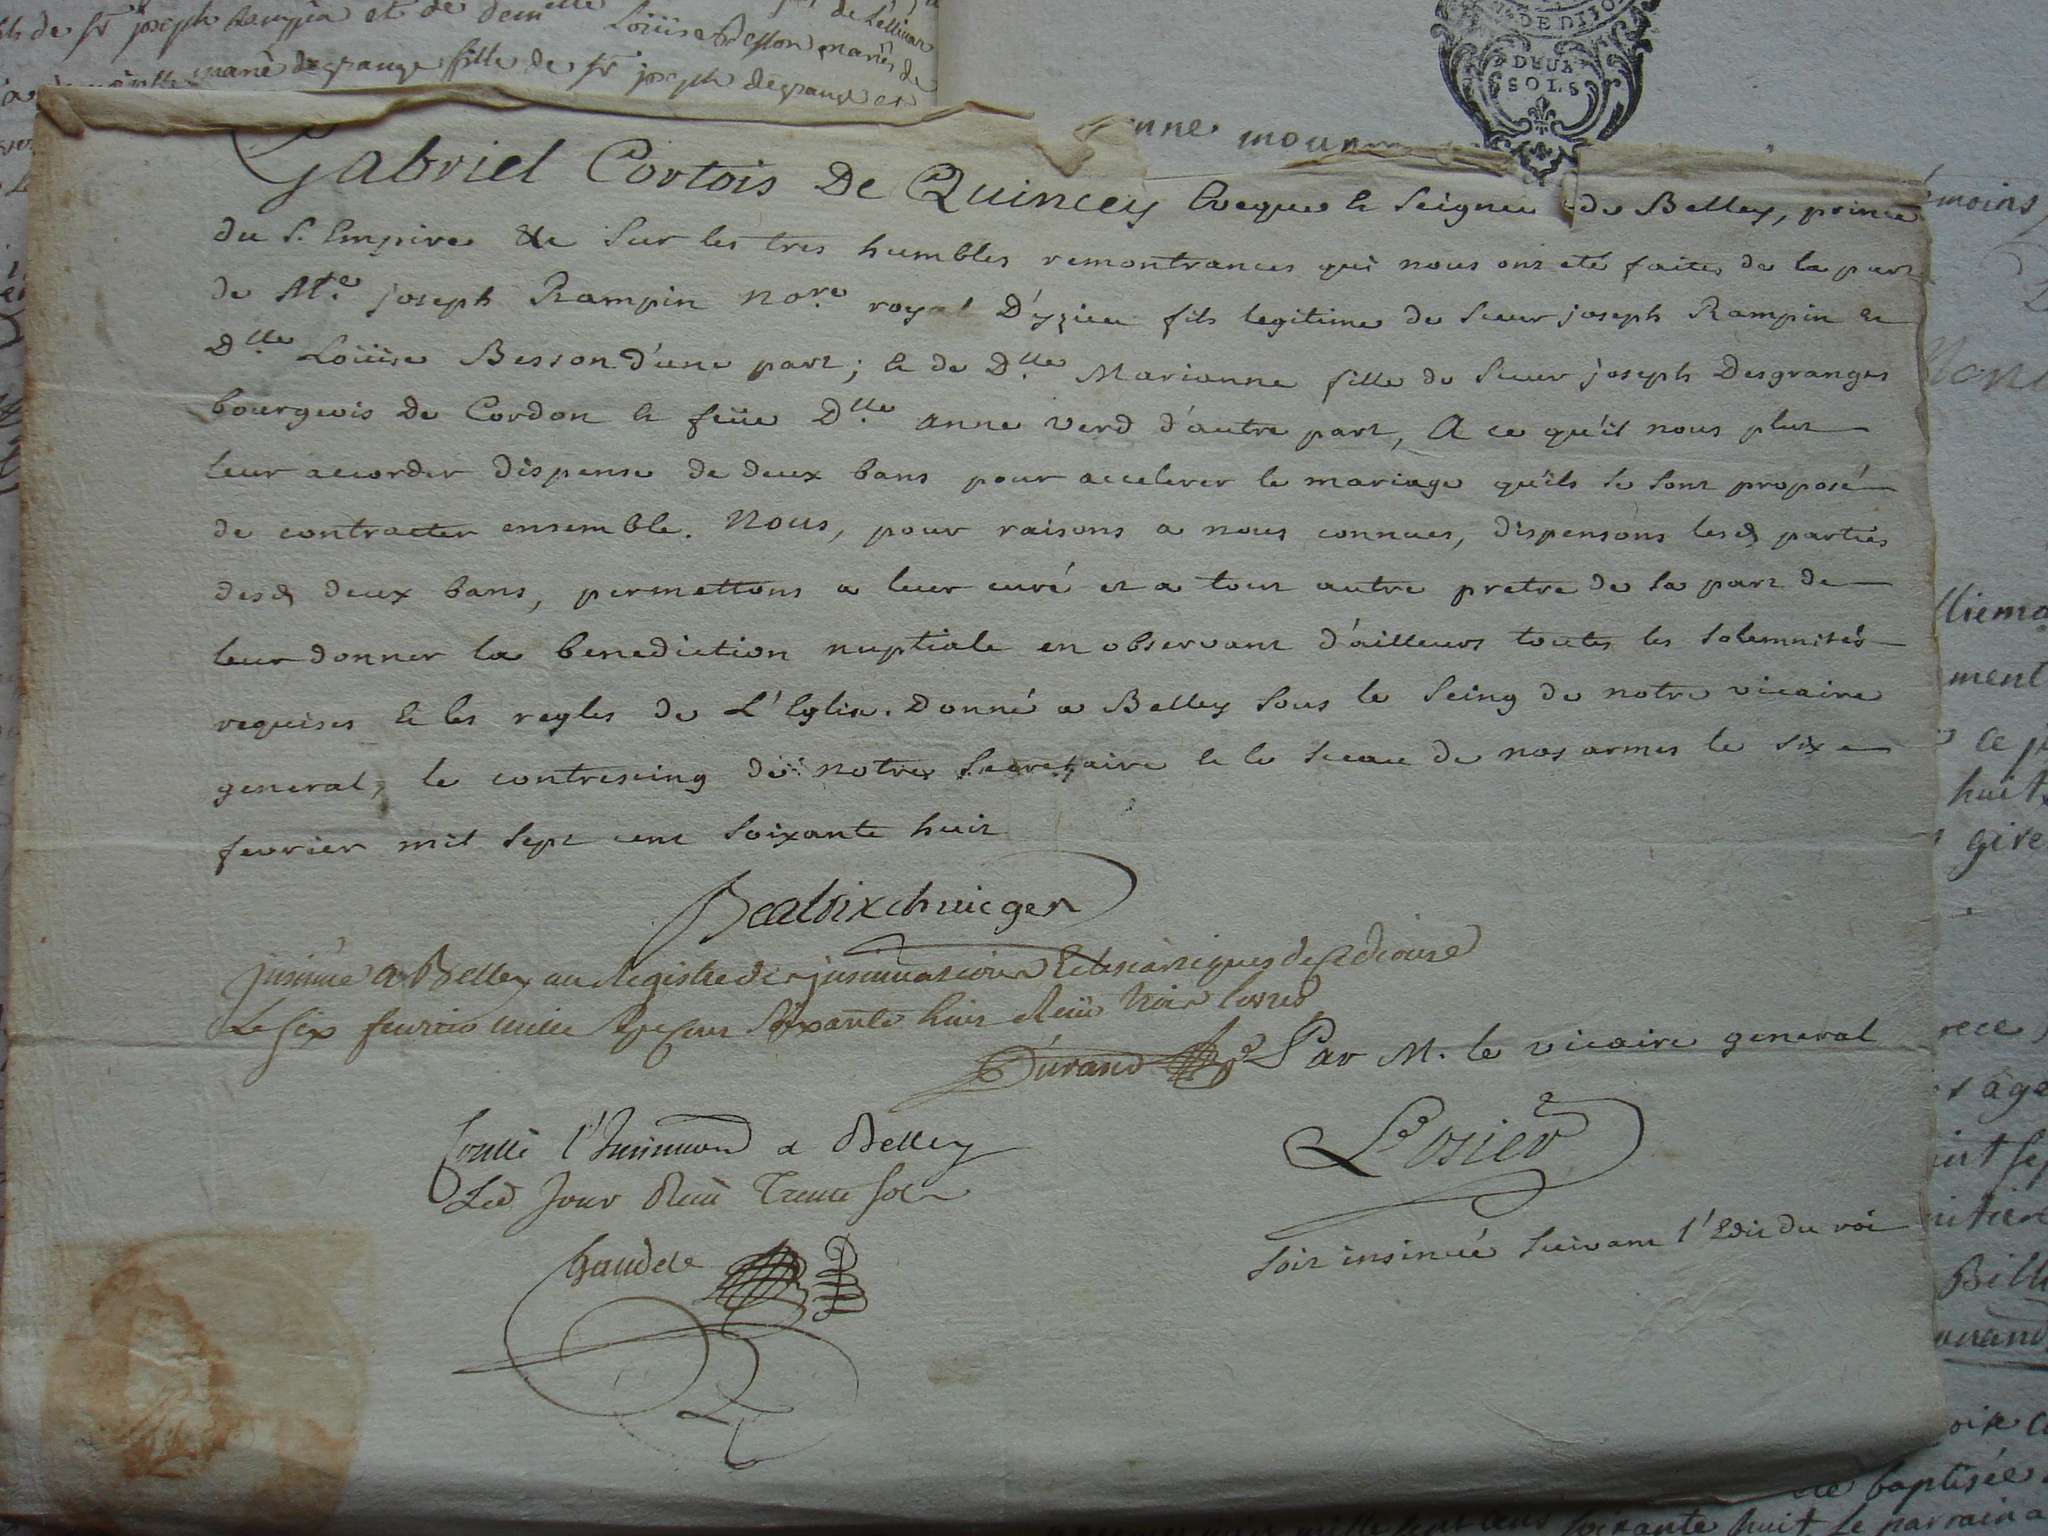 fils de Sr joseph Rampin et de demelle Loüise Besson mariés de
marie degrange fille de Sr joseph degrange et
DE DIJON
DEUX
SOLS
Gabriel Cortois De Quincey Eveque & Seigneu de Belley, prince
du S. Empire &c Sur les tres humbles remontrances qui nous ont eté faites de la part
de Mt.e joseph Rampin No.re royal D'yzieu fils legitime de Sieur joseph Rampin &
D.lle Loüise Besson d'une part; & de D.lle Marianne fille de Sieur joseph Desgranges
bourgeois de Cordon & feüe D.lle anne Verd d'autre part, A ce qu'il nous plut
leur accorder dispense de deux bans pour accelerer le mariage qu'ils se sont proposé
de contracter ensemble. Nous, pour raisons a nous connues, dispensons lesd parties
desd deux bans, permettons a leur curé et a tout autre pretre de sa part de
leur donner la benediction nuptiale en observant d'ailleurs toutes les solemnités
requises & les regles de L'Eglise. Donné a Belley sous le seing de notre vicaire
general, le contreseing de notre secretaire & le sceau de nos armes le six
fevrier mil sept cent soixante huit
vic ger
jnsinué a Belley au Registre des jnsinuations Eclesiastiques de ce diocese
Le six fevrier mille Sept Cent Soixante huit Reçû trois livres
Durand
Par M. le vicaire general
Losier
l'Insinuaon a Belley
Led Jour Reçû Trente Sols
soit insinuée suivant l'Edit du roi
moins,
ment
ce
huit
age
Billi
baptisée
soixante huit le parrain a